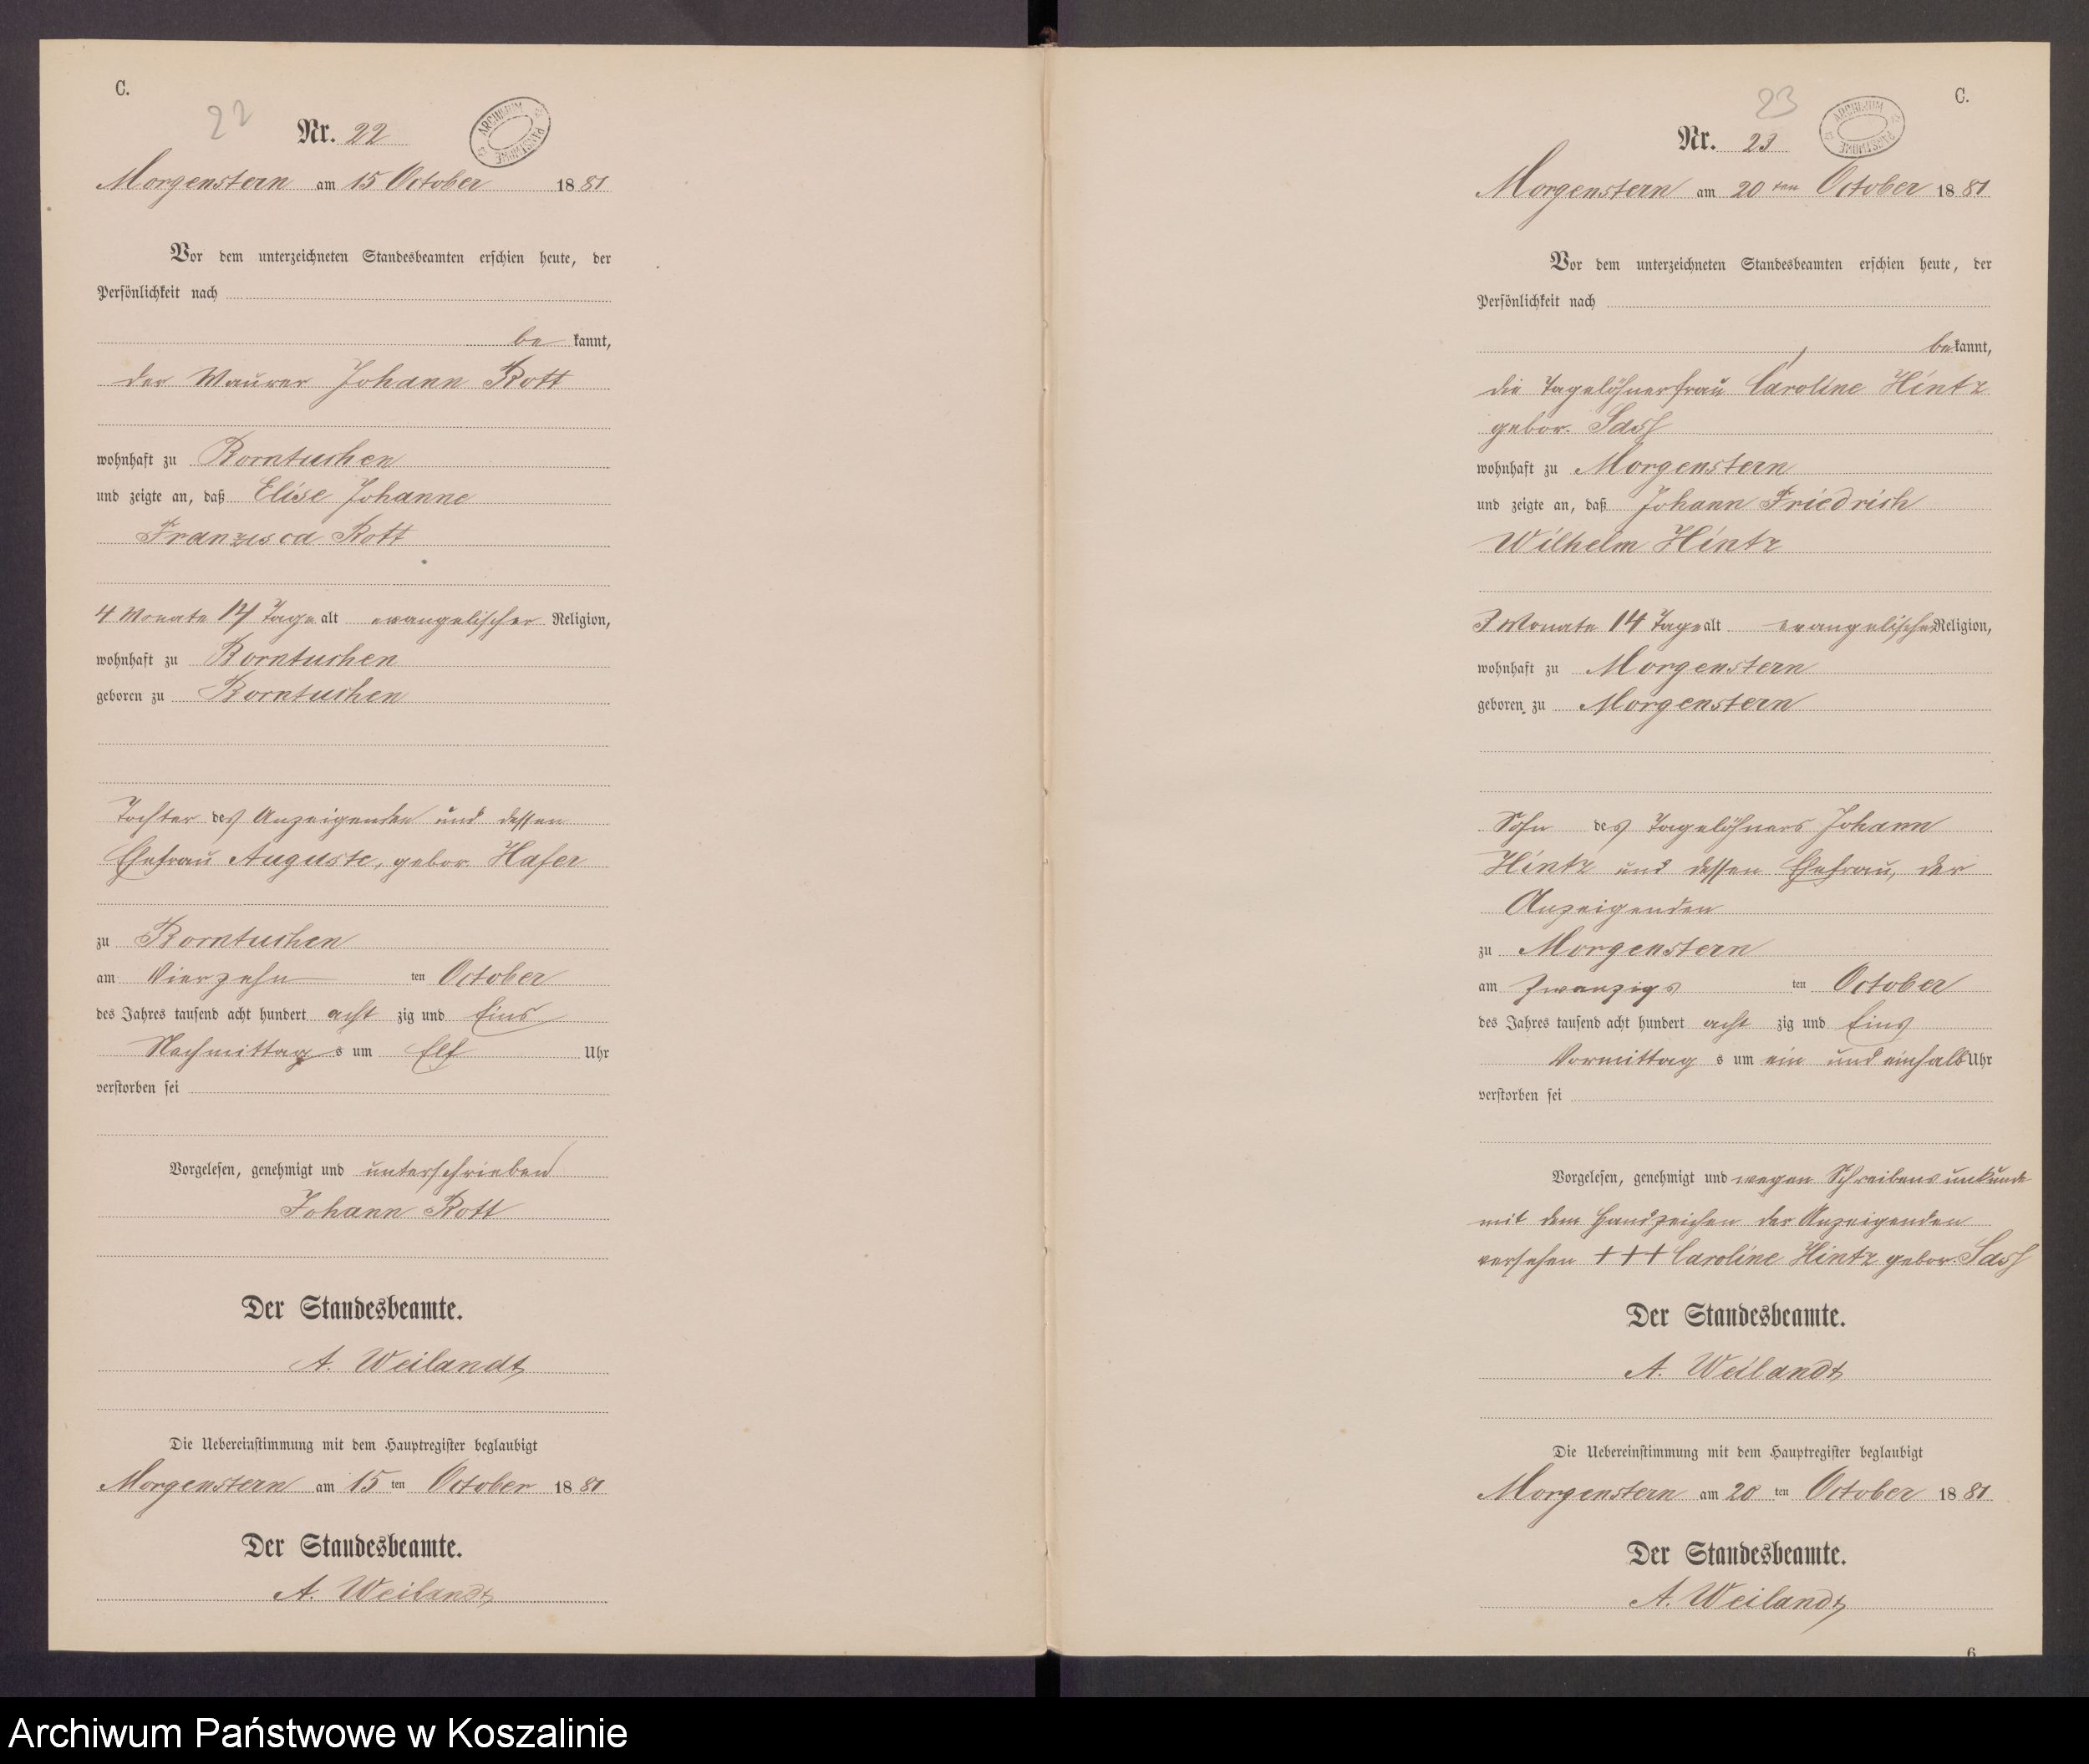 C.
22
Nr. 22
ARCHIWUM PAŃSTWOWE
Morgenstern am 15 October 1881
Vor dem unterzeichneten Standesbeamten erschien heute, der
Persönlichkeit nach
be kannt,
der Maurer Johann Rott
wohnhaft zu Borntuchen
und zeigte an, daß Elise Johanne
Franzisca Rott
4 Monate 14 Tage alt evangelischer Religion,
wohnhaft zu Borntuchen
geboren zu Borntuchen
Tochter des Anzeigenden und dessen
Ehefrau Auguste, gebor. Hafer
zu Borntuchen
am Vierzehn ten October
des Jahres tausend acht hundert acht zig und Eins
Nachmittag s um Elf Uhr
verstorben sei
Vorgelesen, genehmigt und unterschrieben
Johann Rott
Der Standesbeamte.
A. Weilandt
Die Uebereinstimmung mit dem Hauptregister beglaubigt
Morgenstern am 15 ten October 1881
Der Standesbeamte.
A. Weilandt
C.
23
Nr. 23
ARCHIWUM PAŃSTWOWE
Morgenstern am 20 ten October 1881
Vor dem unterzeichneten Standesbeamten erschien heute, der
Persönlichkeit nach
bekannt,
die Tagelöhnerfrau Caroline Hintz
gebor. Sass
wohnhaft zu Morgenstern
und zeigte an, daß Johann Friedrich
Wilhelm Hintz
3 Monate 14 Tage alt evangelischer Religion,
wohnhaft zu Morgenstern
geboren zu Morgenstern
Sohn des Tagelöhners Johann
Hintz und dessen Ehefrau, der
Anzeigenden
zu Morgenstern
am Zwanzigs ten October
des Jahres tausend acht hundert acht zig und Eins
Vormittag s um ein und einhalb Uhr
verstorben sei
Vorgelesen, genehmigt und wegen Schreibensunkunde
mit dem Handzeichen der Anzeigenden
versehen +++ Caroline Hintz gebor. Sass
Der Standesbeamte.
A. Weilandt
Die Uebereinstimmung mit dem Hauptregister beglaubigt
Morgenstern am 20 ten October 1881
Der Standesbeamte.
A. Weilandt
6
Archiwum Państwowe w Koszalinie